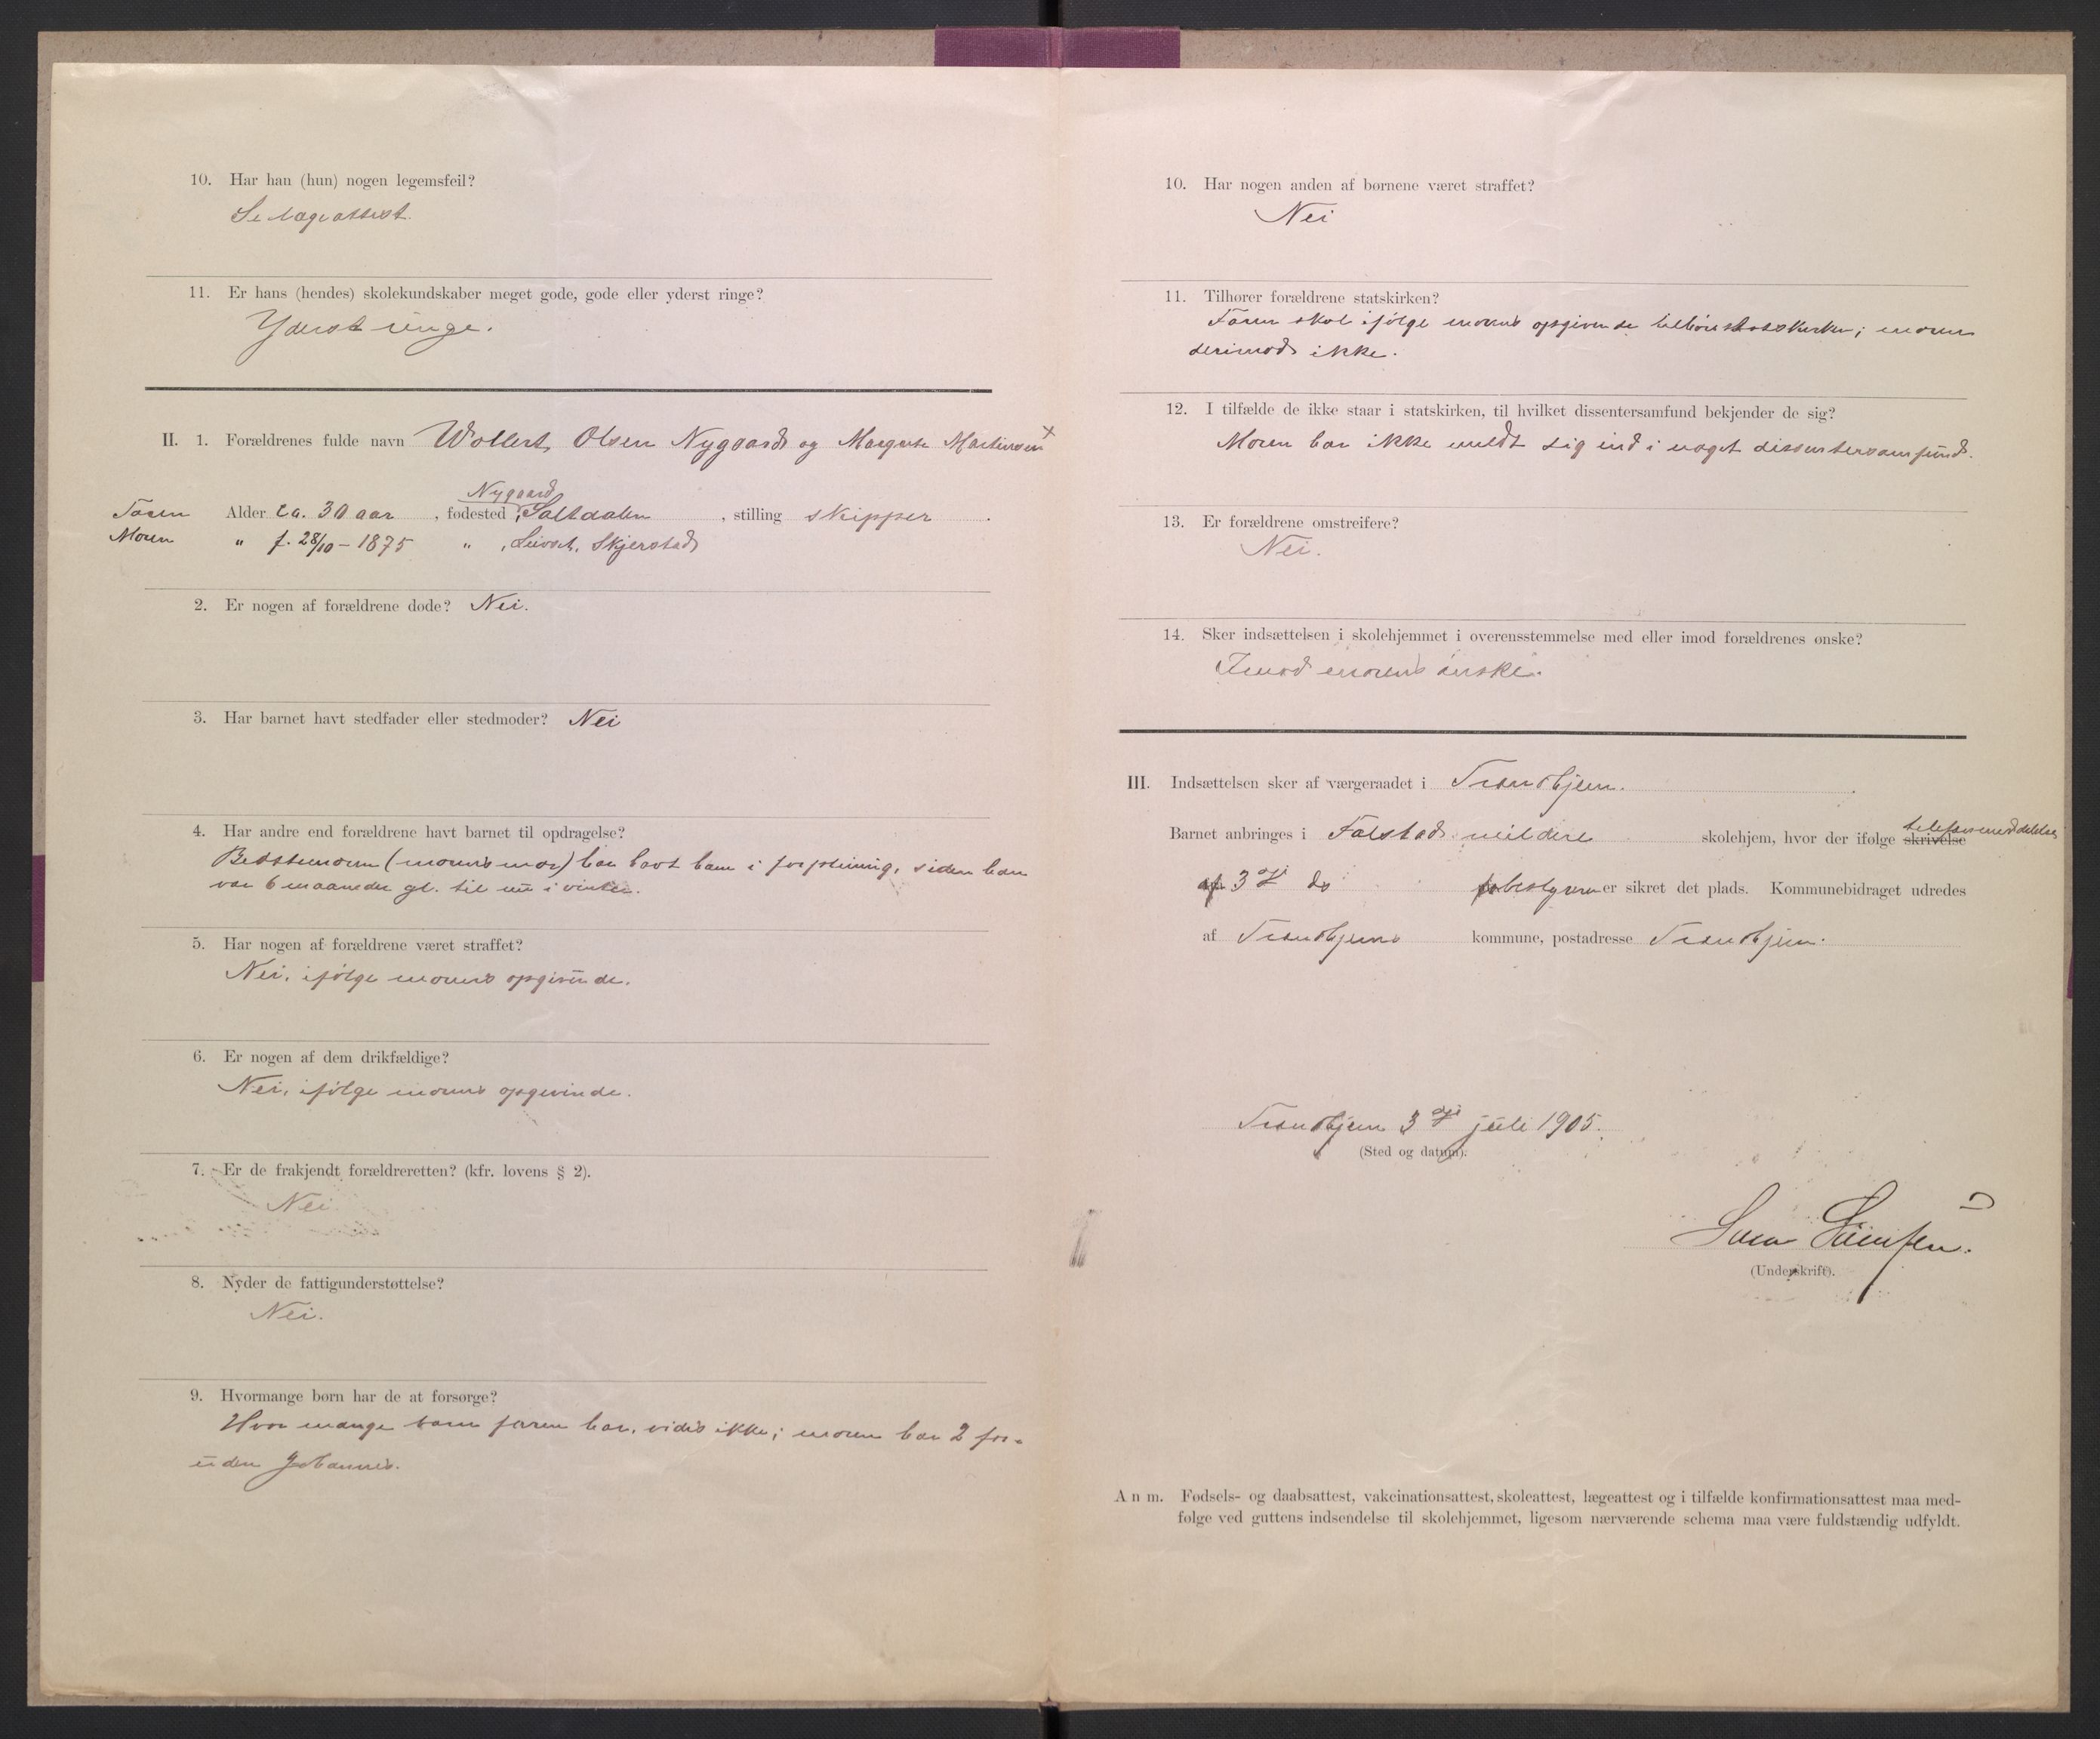 10. Har han (hun) nogen legemsfeil?
Se lægeattest.
11. Er hans (hendes) skolekundskaber meget gode, gode eller yderst ringe?
Yderst ringe.
II. 1. Forældrenes fulde navn Wollert Olsen Nygaard og Margrete Martinsen x
Nygaard
Faren Alder ca. 30 aar, fødested, Saltdalen, stilling skipper.
Moren " f. 28/10 – 1875 " , Skjerstad
2. Er nogen af forældrene døde? Nei.
3. Har barnet havt stedfader eller stedmoder? Nei
4. Har andre end forældrene havt barnet til opdragelse?
Bedstemoren (morens mor) har havt ham i forpleining, siden han
var 6 maaneder gl. til nu i vinter.
5. Har nogen af forældrene været straffet?
Nei, ifølge morens opgivende.
6. Er nogen af dem drikfældige?
Nei, ifølge morens opgivende.
7. Er de frakjendt forældreretten? (kfr. lovens § 2).
Nei
8. Nyder de fattigunderstøttelse?
Nei.
9. Hvormange børn har de at forsørge?
Hvor mange barn faren har, vides ikke; moren har 2 for-
uden Johannes.
10. Har nogen anden af børnene været straffet?
Nei
11. Tilhører forældrene statskirken?
Faren skal ifølge morens opgivende tilhøre statskirken; moren
derimod ikke.
12. I tilfælde de ikke staar i statskirken, til hvilket dissentersamfund bekjender de sig?
Moren har ikke meldt sig ind i noget dissentersamfund.
13. Er forældrene omstreifere?
Nei.
14. Sker indsættelsen i skolehjemmet i overensstemmelse med eller imod forældrenes ønske?
Imod morens ønske.
III. Indsættelsen sker af værgeraadet i Trondhjem.
telefonmeddelelse
Barnet anbringes i Falstad mildere skolehjem, hvor der ifølge skrivelse
af 3 ds bestyreren er sikret det plads. Kommunebidraget udredes
af Trondhjems kommune, postadresse Trondhjem.
Trondhjem 3 juli 1905.
(Sted og datum).
(Underskrift).
Anm. Fødsels- og daabsattest, vakcinationsattest, skoleattest, lægeattest og i tilfælde konfirmationsattest maa med-
følge ved guttens indsendelse til skolehjemmet, ligesom nærværende schema maa være fuldstændig udfyldt.